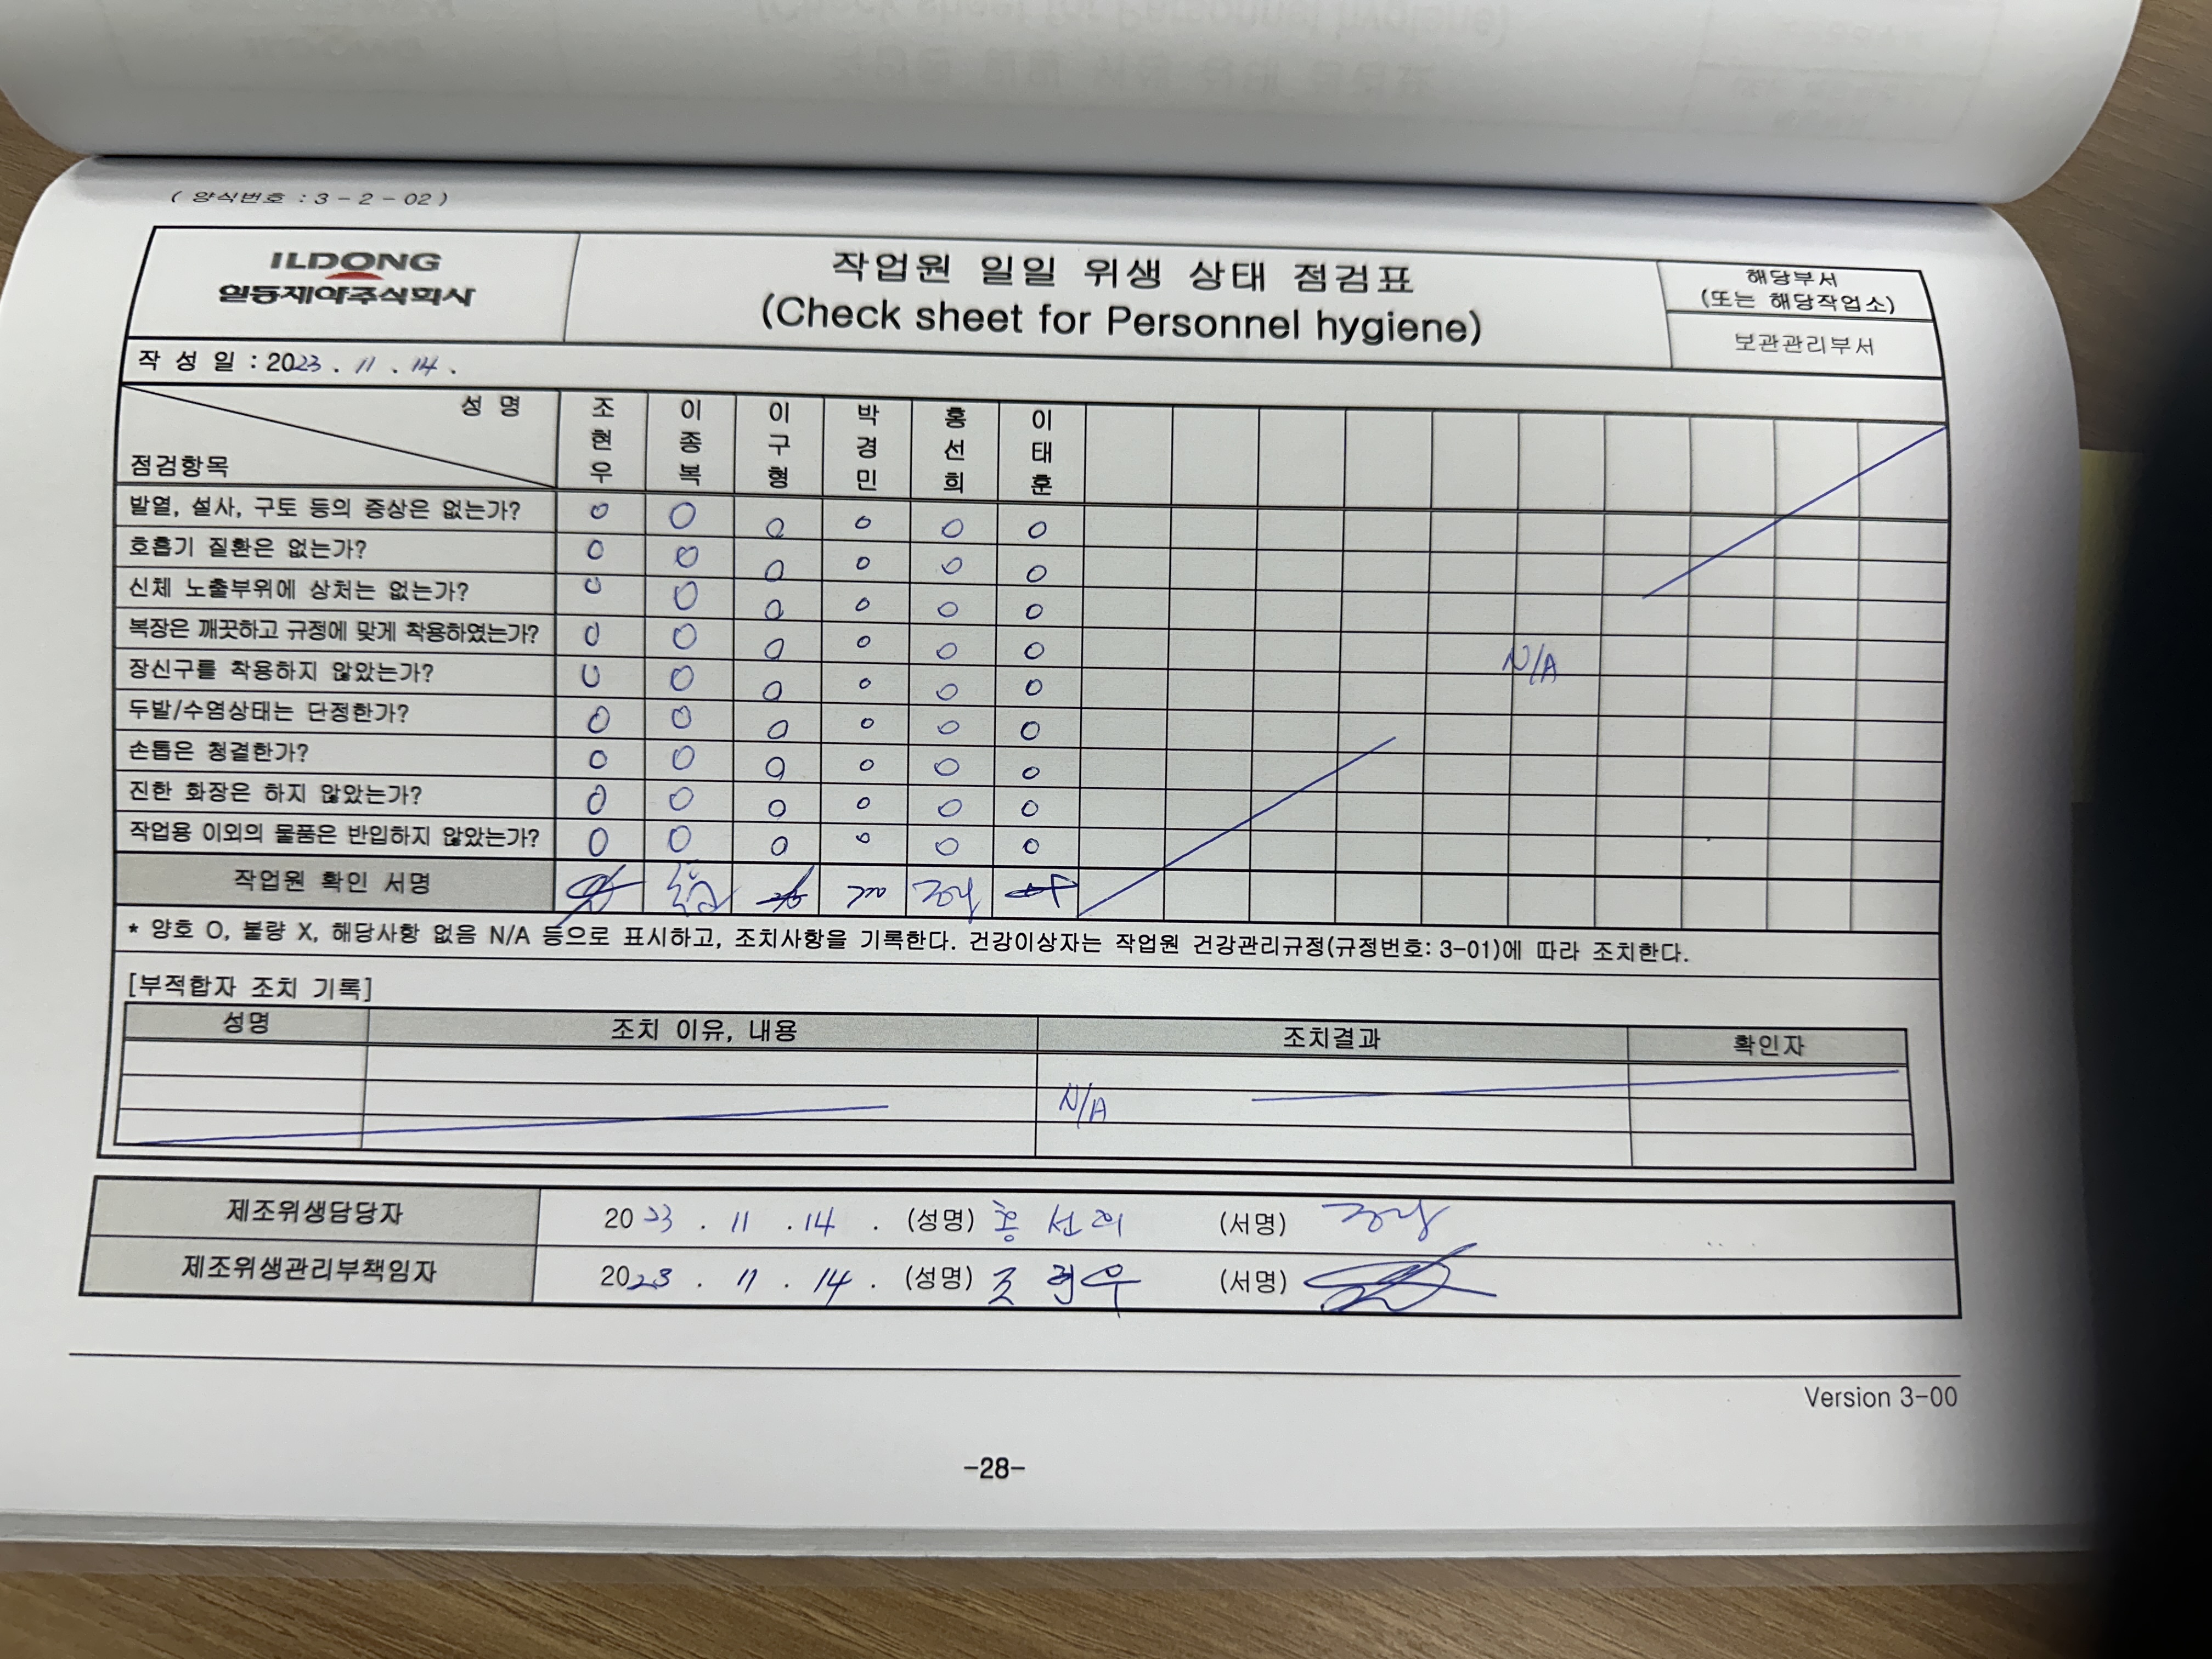 ( 양식번호 : 3 - 2 - 02 )
ILDONG
일동제약주식회사
작업원 일일 위생 상태 점검표
(Check sheet for Personnel hygiene)
해당부서
(또는 해당작업소)
보관관리부서
작 성 일 : 2023 . 11 . 14 .
성 명 조현우 이종복 이구형 박경민 홍선희 이태훈
점검항목
발열, 설사, 구토 등의 증상은 없는가? O O O O O O
호흡기 질환은 없는가? O O O O O O
신체 노출부위에 상처는 없는가? O O O O O O
복장은 깨끗하고 규정에 맞게 착용하였는가? O O O O O O
N/A
장신구를 착용하지 않았는가? O O O O O O
두발/수염상태는 단정한가? O O O O O O
손톱은 청결한가? O O O O O O
진한 화장은 하지 않았는가? O O O O O O
작업용 이외의 물품은 반입하지 않았는가? O O O O O O
작업원 확인 서명
* 양호 O, 불량 X, 해당사항 없음 N/A 등으로 표시하고, 조치사항을 기록한다. 건강이상자는 작업원 건강관리규정(규정번호: 3-01)에 따라 조치한다.
[부적합자 조치 기록]
성명 조치 이유, 내용 조치결과 확인자
N/A
제조위생담당자 2023 . 11 . 14 . (성명) 홍 선 희 (서명)
제조위생관리부책임자 2023 . 11 . 14 . (성명) 조 현 우 (서명)
Version 3-00
-28-